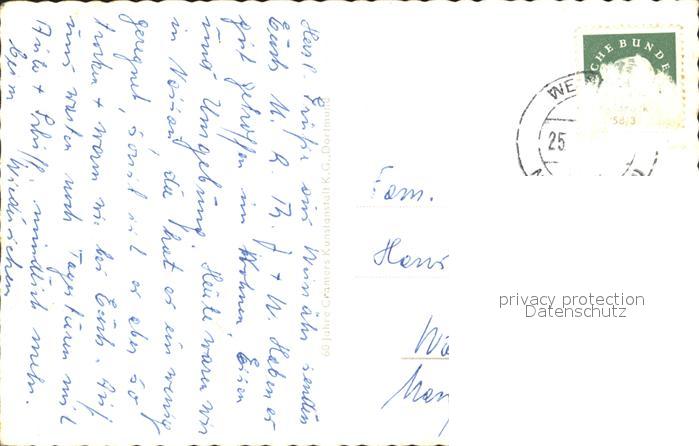 Herzl. Grüße aus Winnähr senden
Euch M. R. Th. J + W. Haben es
gut getroffen im Wohnen, Essen
und Umgebung. Heute waren wir
in Nassau, da hat es ein wenig
geregnet, sonst ist es aber so
trocken + warm wie bei Euch. Auf
uns warten noch Tagestouren mit
Auto + Schiff. mündlich mehr.
beim Wiedersehen
60 Jahre Cramers Kunstanstalt K.G., Dortmund
CHE BUNDE
WE
25
58/3
Fam.
Hans
privacy protection
Datenschutz